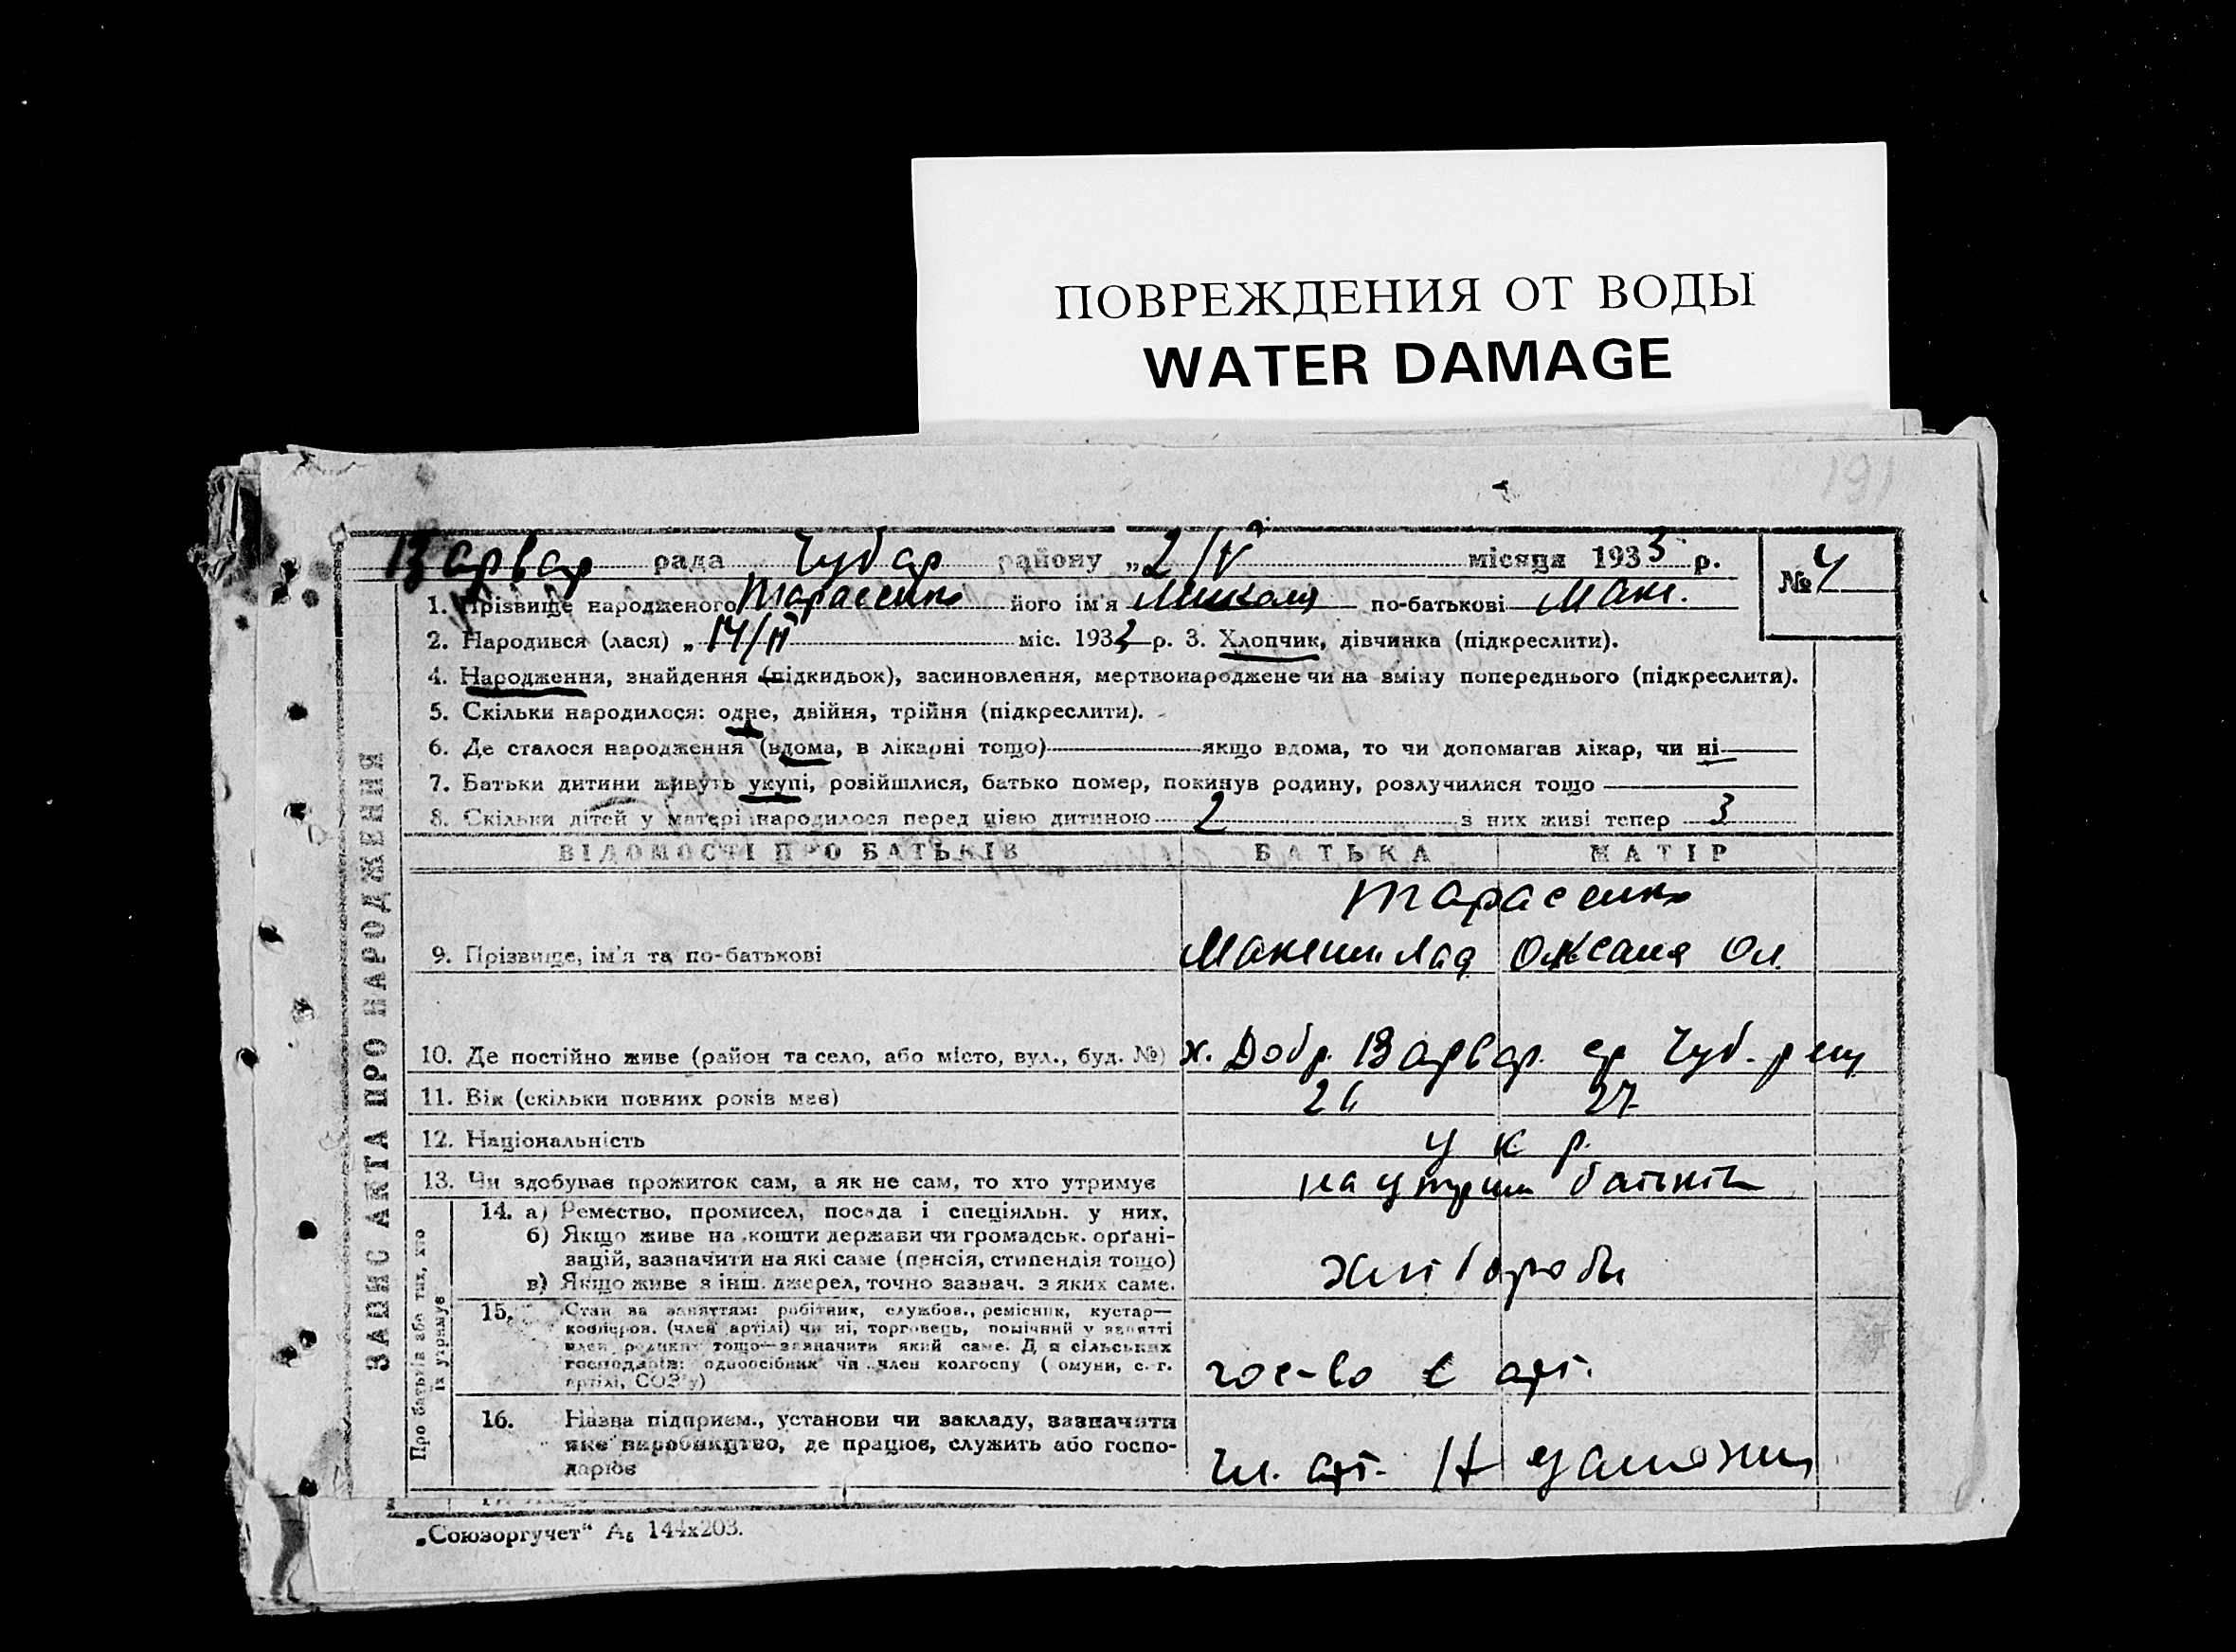 ПОВРЕЖДЕНИЯ ОТ ВОДЫ
WATER DAMAGE
191
Варвар рада Чубар району „2/IV місяця 1933 р. № 4
1. Прізвище народженого Тарасенко його ім'я Микола по-батькові Макс.
2. Народився (лася) „14/II міс. 1932 р. 3. Хлопчик, дівчинка (підкреслити).
4. Народження, знайдення (підкидьок), засиновлення, мертвонароджене чи на зміну попереднього (підкреслити).
5. Скільки народилося: одне, двійня, трійня (підкреслити).
6. Де сталося народження (вдома, в лікарні тощо) якщо вдома, то чи допомагав лікар, чи ні
7. Батьки дитини живуть укупі, розійшлися, батько помер, покинув родину, розлучилися тощо
8. Скільки дітей у матері народилося перед цією дитиною 2 з них живі тепер 3
ВІДОМОСТІ ПРО БАТЬКІВ БАТЬКА МАТІР
Тарасенко
9. Прізвище, ім'я та по-батькові Оксана Ол.
10. Де постійно живе (район та село, або місто, вул., буд. №) х. Добр. Варвар. ср Чуб-
11. Вік (скільки повних років має) 26 27
12. Національність укр.
13. Чи здобував прожиток сам, а як не сам, то хто утримує на утрим батьків
ЗАПИС АКТА ПРО НАРОДЖЕННЯ
Про батьків або тих, хто їх утримує
14. а) Ремество, промисел, посада і спеціяльн. у них.
б) Якщо живе на кошти держави чи громадськ. орґані-
зацій, зазначити на які саме (пенсія, стипендія тощо)
в) Якщо живе з інш. джерел, точно зазнач. з яких саме. хлібороби
15. Стан за заняттям: робітник, службов., ремісник, кустар—
кооперов. (член артілі) чи ні, торговець, помічний у занятті
член родини тощо—зазначити який саме. Для сільських
господарів: одноосібник чи член колгоспу (комуни, с.-г.
артілі, СОЗ'у) гос-во с арт.
16. Назва підприєм., установи чи закладу, зазначити
яке виробництво, де працює, служить або госпо-
дарює чл. арт. Незаможни
„Союзоргучет“ А₆ 144х203.